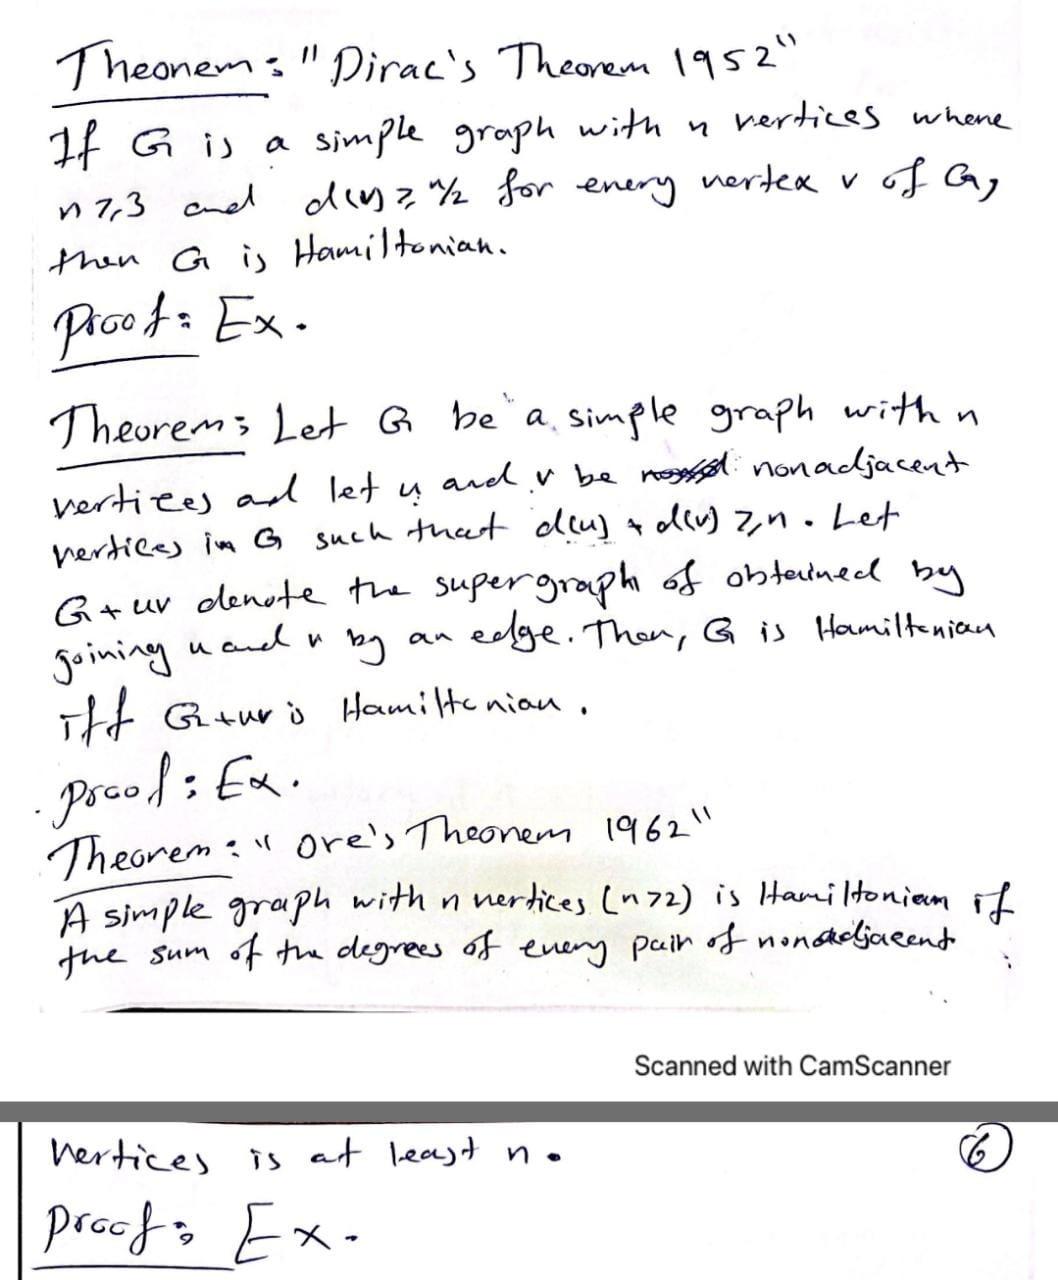 Theorem: "Dirac's Theorem 1952"
If G is a simple graph with n vertices where
n ≥ 3 and d(v) ≥ n/2 for every vertex v of G,
then G is Hamiltonian.
Proof: Ex.
Theorem: Let G be a simple graph with n
vertices ad let u and v be nonadjacent
vertices in G such that d(u) + d(v) ≥ n. Let
G + uv denote the supergraph of obtained by
joining u and v by an edge. Then, G is Hamiltonian
iff G+uv is Hamiltonian.
Proof: Ex.
Theorem: "Ore's Theorem 1962"
A simple graph with n vertices (n>2) is Hamiltonian if
the sum of the degrees of every pair of nonadjacent
Scanned with CamScanner
vertices is at least n.
6
Proof: Ex.